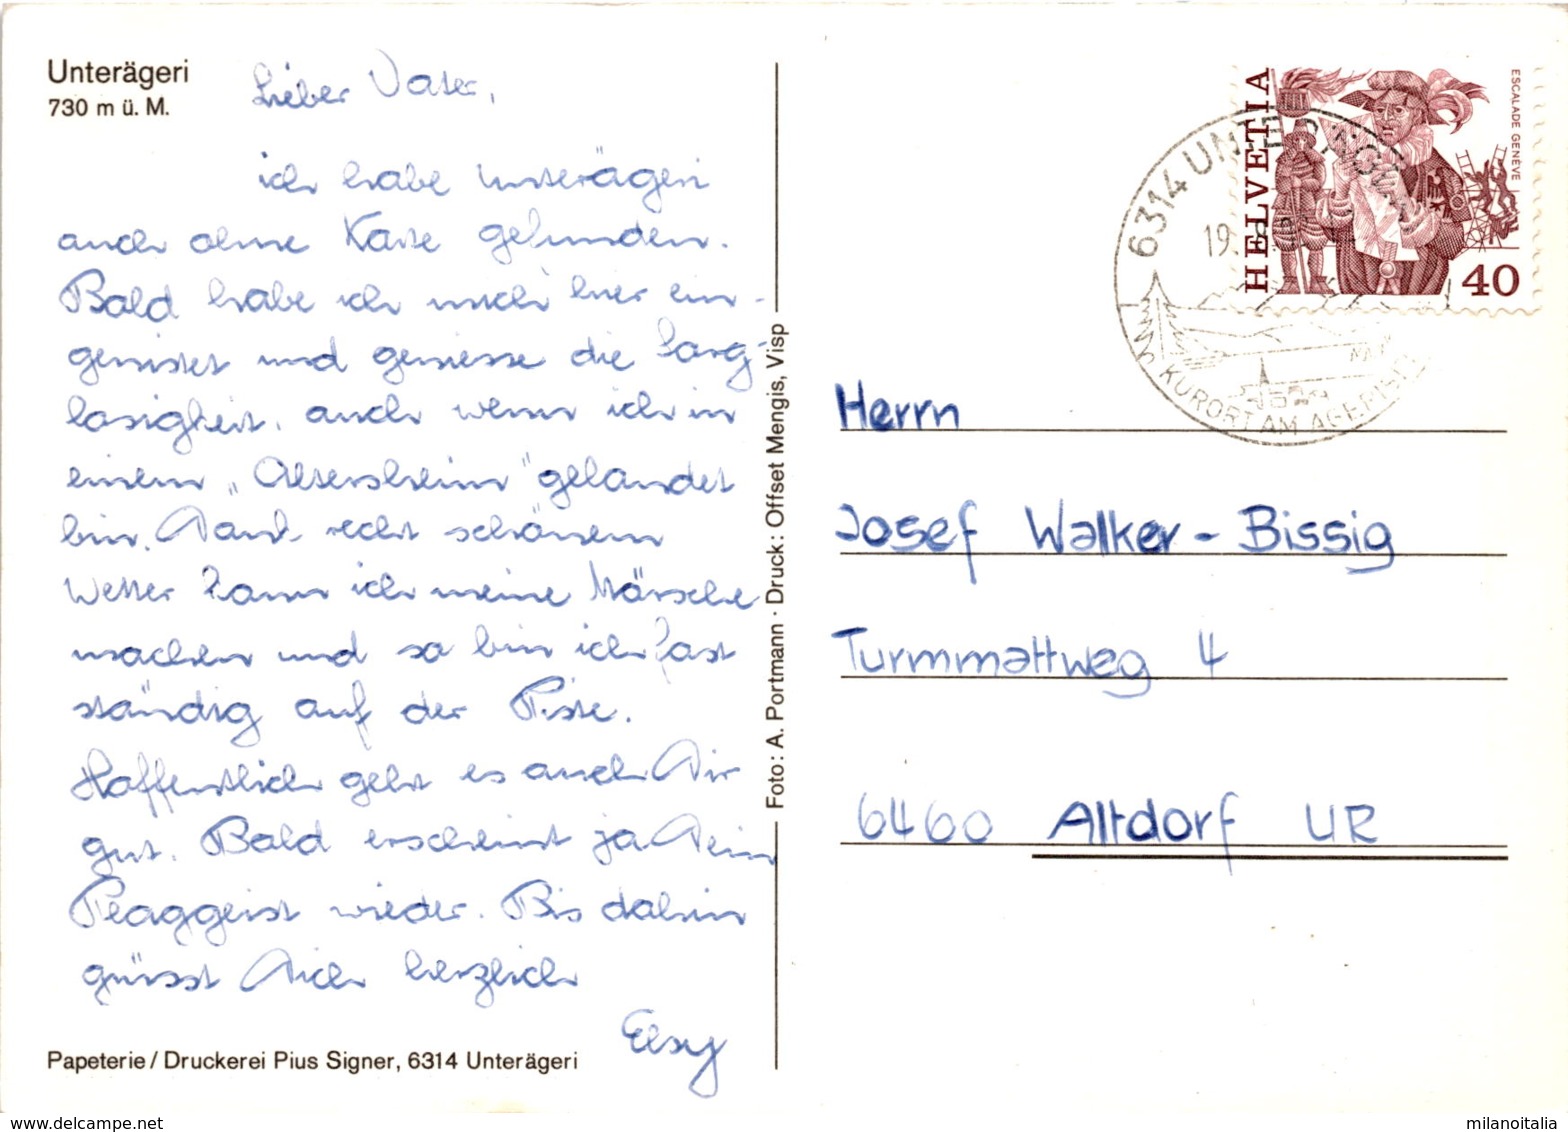 Unterägeri
730 m ü. M.
Lieber Vater,
ich habe Unterägeri
auch ohne Karte gefunden.
Bald habe ich mich hier ein-
genistet und geniesse die Sorg-
losigkeit, auch wenn ich in
einem „Altersheim“ gelandet
bin. Dank recht schönem
Wetter kann ich meine Märsche
machen und so bin ich fast
ständig auf der Piste.
Hoffentlich geht es auch Dir
gut. Bald erscheint ja Dein
Plaggeist wieder. Bis dahin
grüsst Dich herzlich
Elsy
Papeterie / Druckerei Pius Signer, 6314 Unterägeri
Foto: A. Portmann · Druck: Offset Mengis, Visp
HELVETIA
ESCALADE GENÈVE
40
6314 UNTERÄGERI
19.
KURORT AM AEGERISEE
Herrn
Josef Walker-Bissig
Turmmattweg 4
6460 Altdorf UR
www.delcampe.net
milanoitalia